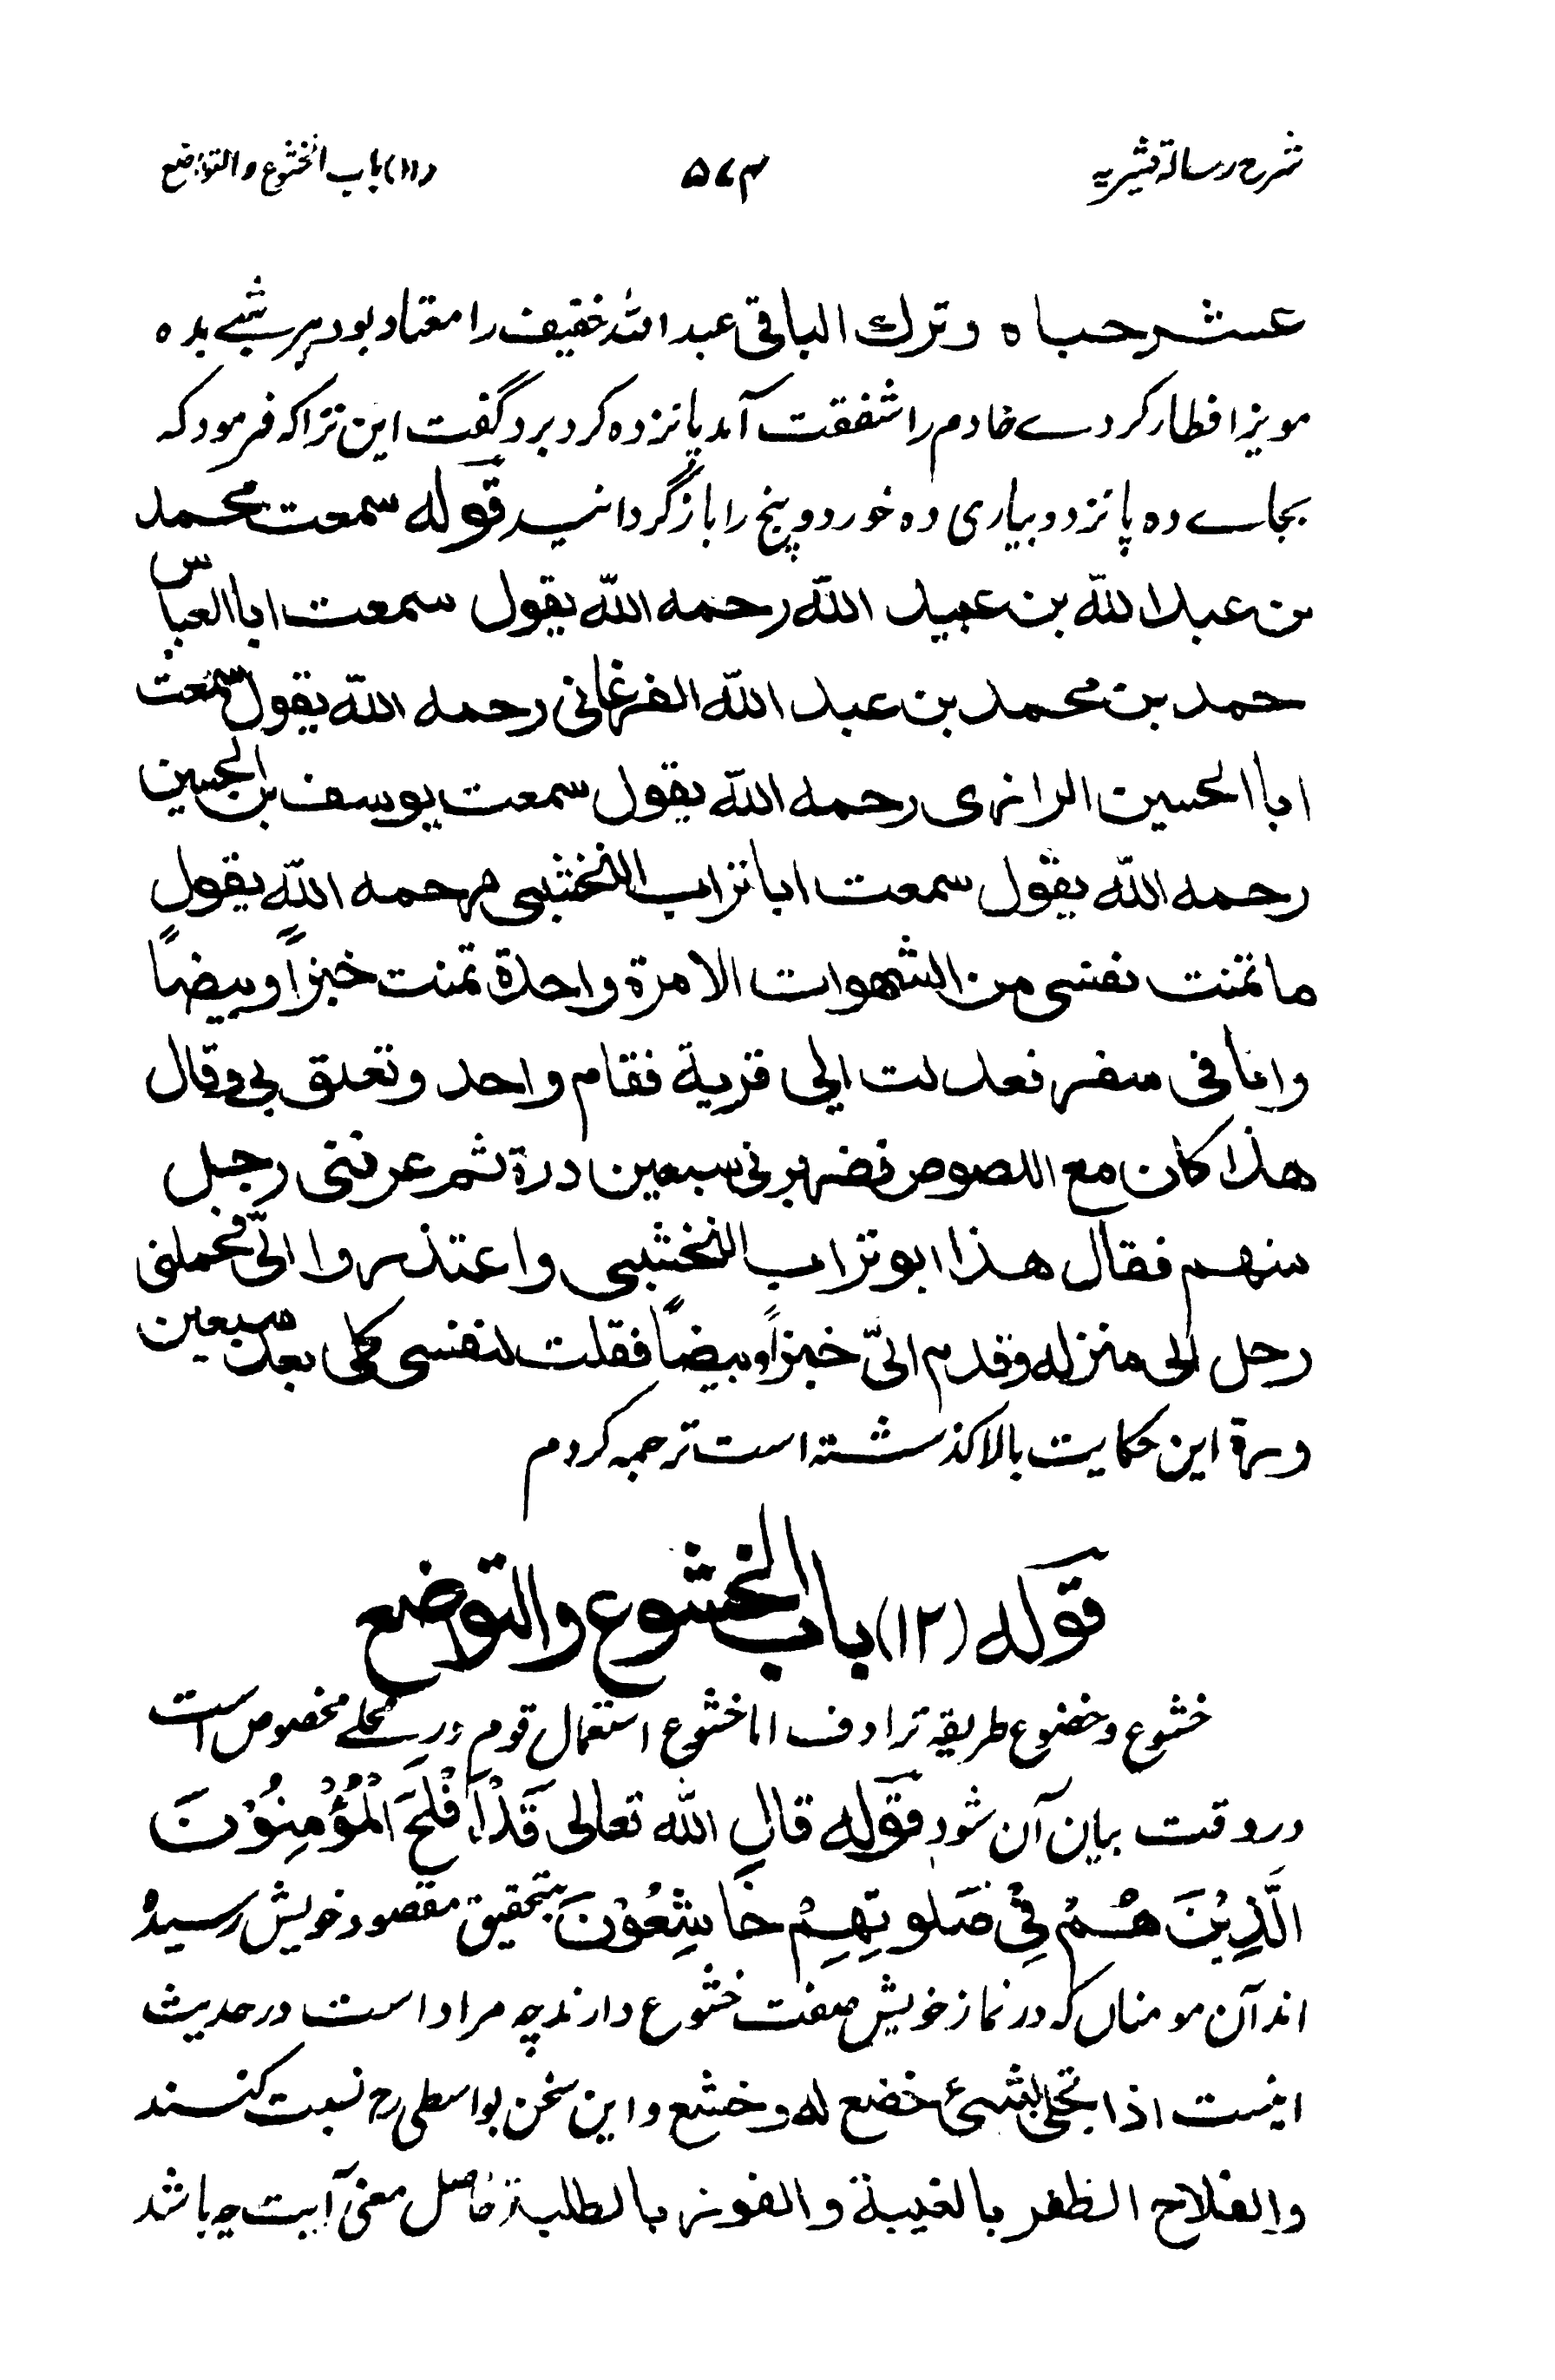 شرح رسالۀ قشیریه ۵۷۳ (۱۱) باب الخشوع والتواضع
عشر حباه وترك الباقى عبد الله خفیف را معتاد بود هر شبے بده
مویز افطار کردے خادم را شفقت آمد پانزده کرد برد گفت این تراکه فرمود که
بجاے ده پانزده بیاری ده خورد و پنج را باز گردانید قوله سمعت محمد
بن عبد الله بن عبید الله رحمه الله یقول سمعت ابا العباس
حمد بن محمد بن عبد الله الفرغانی رحمه الله یقول سمعت
ابا الحسین الرازی رحمه الله یقول سمعت یوسف بن الحسین
رحمه الله یقول سمعت ابا تراب النخشبی رحمه الله یقول
ما تمنت نفسی من الشهوات الا مرة واحدة تمنت خبزاً وبیضاً
وانا فی سفر فعدلت الی قریة فقام واحد وتعلق بی وقال
هذا کان مع اللصوص فضربونی سبعین درة ثم عرفنی رجل
منهم فقال هذا ابو تراب النخشبی واعتذروا الیّ فحملنی
رجل الی منزله وقدم الیّ خبزاً وبیضاً فقلت لنفسی کلی بعد سبعین
درة این حکایت بالا گذشته است ترجمه کردم
قوله (۱۲) باب الخشوع والتواضع
خشوع و خضوع طریقۀ ترادف اما خشوع استعمال قوم در محلے مخصوص است
در وقت بیان آن شود قوله قال الله تعالى قَدْ اَفْلَحَ الْمُؤْمِنُوْنَ
الَّذِيْنَ هُمْ فِيْ صَلوتِهِمْ خَاشِعُوْنَ بتحقیق مقصود خویش رسیده
اند آن مومناں که در نماز خویش صفت خشوع دارند چه مراد است در حدیث
اینست اذا تجلی لشیئ خضع له وخشع و این سخن بواسطی رح نسبت کنند
والفلاح الظفر بالغیبة والفوز بالطلبة حاصل معنی آیت چه باشد